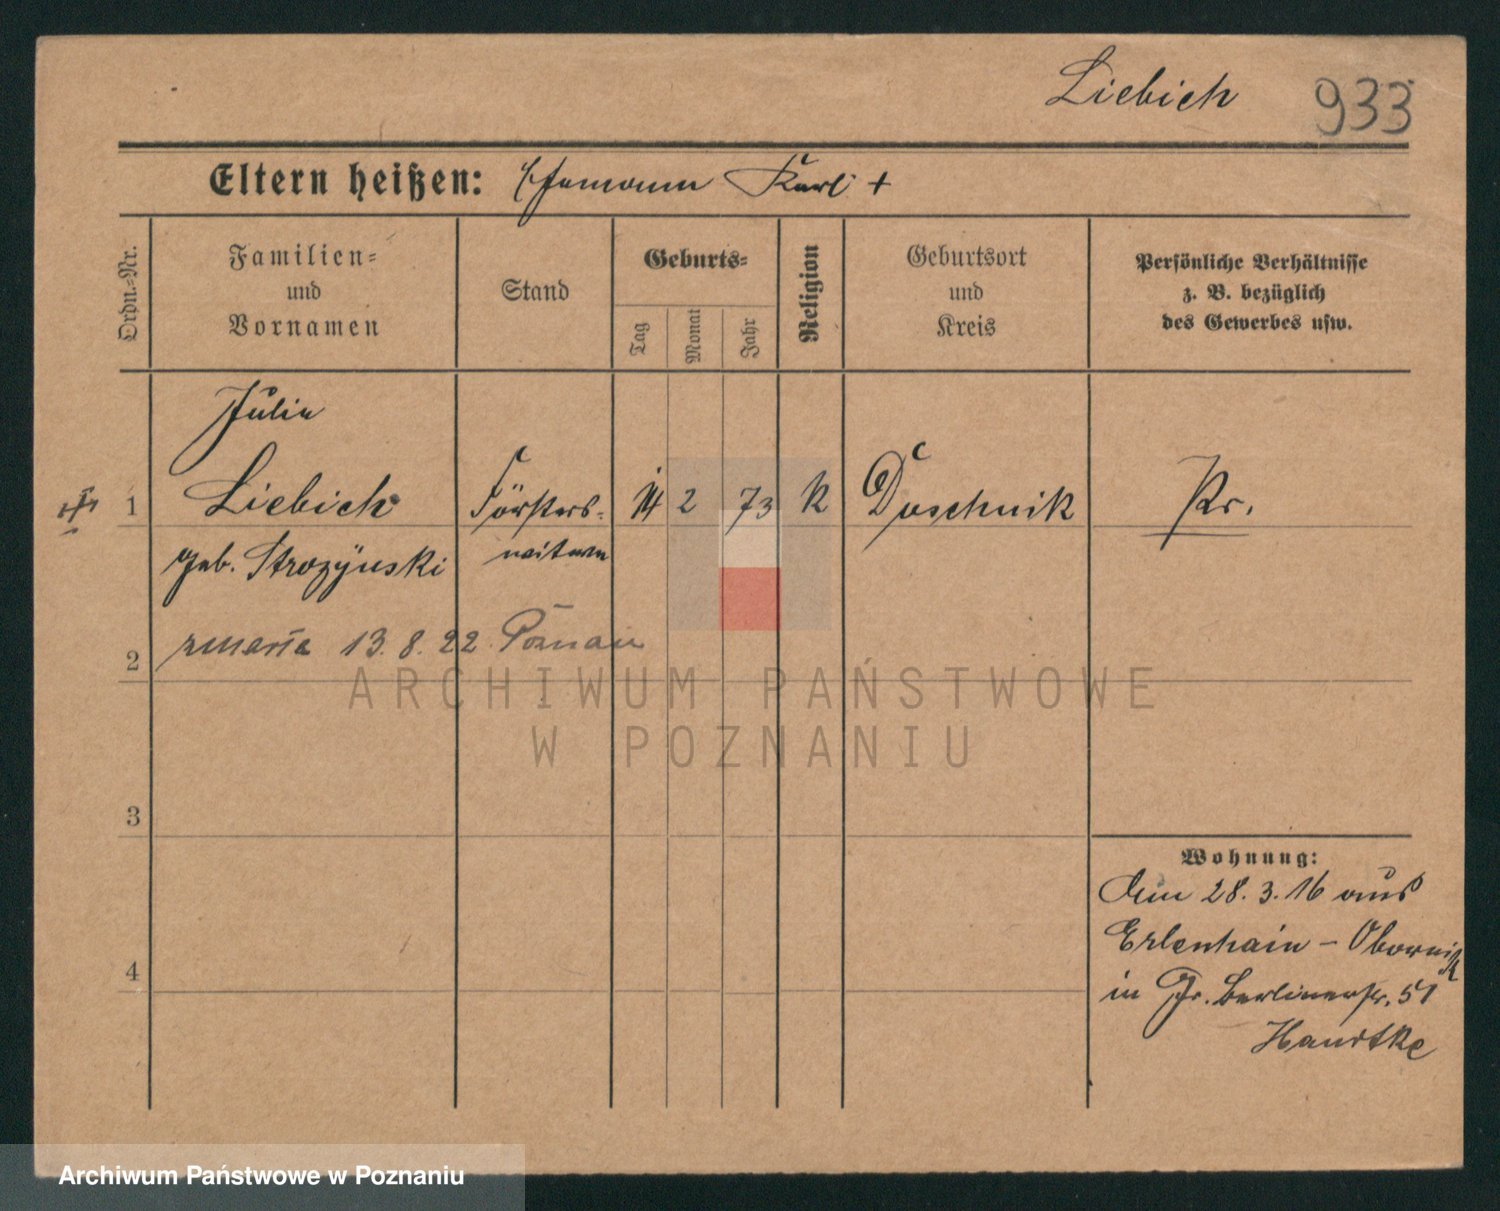 Liebich 933
Eltern heißen: Ehemann Karl +
Ordn.=Nr.
Familien=
und
Vornamen
Stand
Geburts=
Tag
Monat
Jahr
Religion
Geburtsort
und
Kreis
Persönliche Verhältnisse
z. B. bezüglich
des Gewerbes usw.
Julia
1 Liebich Försters= 14 2 73 K Duschnik Pr.
geb. Strozÿnski witwe
2 zmarła 13.8.22 Poznań
ARCHIWUM PAŃSTWOWE
W POZNANIU
3
Wohnung:
28.3.16 aus
Erlenhain - Obornik
4
in Gr. Berlinerstr. 51
Handtke
Archiwum Państwowe w Poznaniu